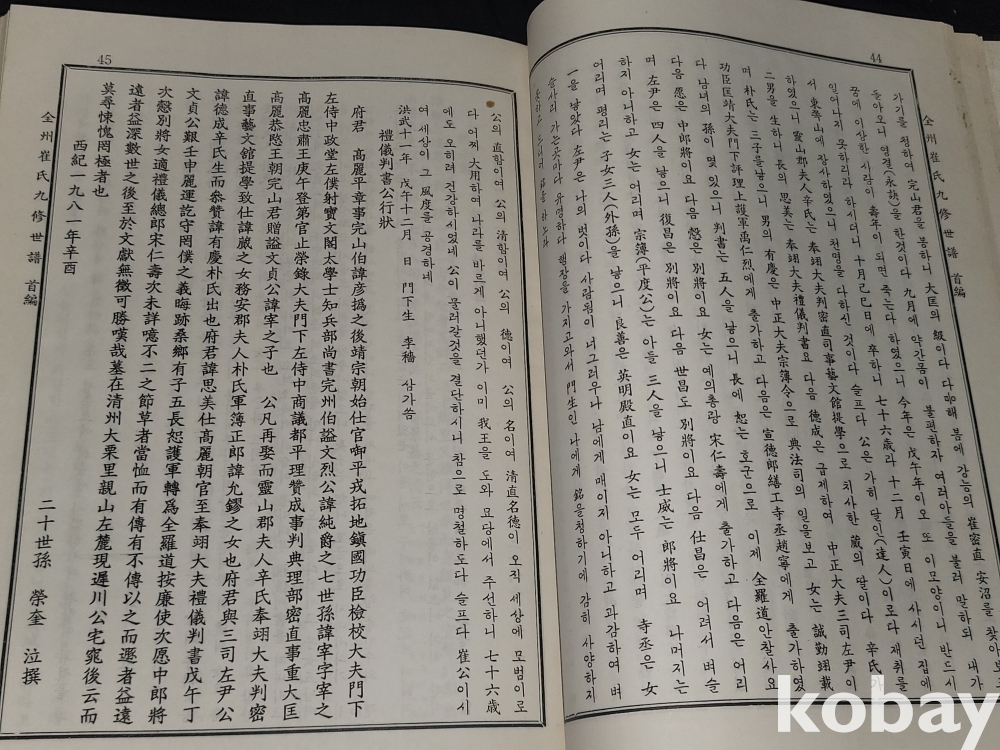 44
全州崔氏九修世譜 首編
가기를 청하여 完山君을 봉하니 大匡의 級이다 다음해 봄에 강능의 崔密直 安沼를 찾아
돌아오니 영결(永訣)을 한것이다 九月에 약간몸이 불편하자 여러아들을 불러 말하되 내가
꿈에 이상한 사람이 壽年이 되면 죽는다 하였으니 今年은 戊午年이요 또 이모양이니 반드시
일어나지 못하리라 하시더니 十月己巳日에 卒하니 七十六歲라 十二月 壬寅日에 사시던 집에
서 東쪽山에 장사하였으니 천명을 다하신 것이다 슬프다 公은 가히 달인(達人)이로다 재취를
하였으니 靈山郡夫人辛氏는 奉翊大夫判密直司事藝文館提學으로 치사한 蕆의 딸이다 辛氏가
二男을 生하니 長의 思美는 奉翊大夫禮儀判書요 다음 德成은 급제하여 中正大夫三司左尹이
며 朴氏는 三子를낳으니 男의 有慶은 中正大夫宗簿令으로 典法司의 일을보고 女는 誠勤翊戴
功臣匡靖大夫門下評理上護軍禹仁烈에게 출가하고 다음은 宣德郎繕工寺丞趙寧에게 출가하였
다 남녀의 孫이 몇 있으니 判書는 五人을 낳으니 長에 恕는 호군으로 이제 全羅道안찰사요
다음 愿은 中郎將이요 다음 慤은 別將이요 女는 예의총랑 宋仁壽에게 출가하고 다음은 어리
며 左尹은 四人을 낳으니 復昌은 別將이요 다음 世昌도 別將이요 다음 仕昌은 어려서 벼슬
하지 아니하고 女는 어리며 宗簿(平度公)는 아들 三人을 낳으니 士威는 郎將이요 나머지는
어리며 評理는 子女三人(外孫)을 낳으니 良善은 英明殿直이요 女는 모두 어리며 寺丞은 女
一을 낳았다 左尹은 나의 벗이다 사람됨이 너그러우나 남에게 매이지 아니하고 과감하여 벼
슬사리 가는곳마다 유명하다 행장을 가지고와서 門生인 나에게 銘을청하기에 감히 사양하지
45
公의 直함이여 公의 清함이여 公의 德이여 公의 名이여 清直名德이 오직 세상에 모범이로
다 어찌 大用하여 나라를 바르게 아니했던가 이미 我王을 도와 묘당에서 주선하니 七十六歲
에도 오히려 건강하시었네 公이 물러갈것을 결단하시니 참으로 명철하도다 슬프다 崔公이시
여 세상이 그 風度를 공경하네
洪武十一年 戊午十二月 日 門下生 李穡 삼가씀
禮儀判書公行狀
府君 高麗平章事完山伯諱彥撝之後靖宗朝始仕官御平戎拓地鎭國功臣檢校大夫門下
左侍中政堂左僕射寶文閣太學士知兵部尚書完州伯諡文烈公諱純爵之七世孫諱宰字宰之
高麗忠肅王庚午登第官止榮祿大夫門下左侍中商議都平理贊成事判典理部密直事重大匡
高麗恭愍王朝完山君贈諡文貞公諱宰之子也 公凡再娶而靈山郡夫人辛氏奉翊大夫判密
直事藝文館提學致仕諱蕆之女務安郡夫人朴氏軍簿正郎諱允鏐之女也府君與三司左尹公
諱德成辛氏生而參贊諱有慶朴氏出也府君諱思美仕高麗朝官至奉翊大夫禮儀判書戊午丁
文貞公艱壬申麗運訖守罔僕之義晦跡桑鄕有子五長恕護軍轉爲全羅道按廉使次愿中郎將
次慤別將女適禮儀總郎宋仁壽次未詳噫不二之節草者當恤而有傳有不傳以之而遯者益遠
遠者益深數世之後至於文獻無徵可勝嘆哉墓在清州大栗里親山左麓現遲川公宅窕後云而
莫尋悚愧罔極者也
西紀一九八一年辛酉
二十世孫 榮奎 泣撰
全州崔氏九修世譜 首編
kobay